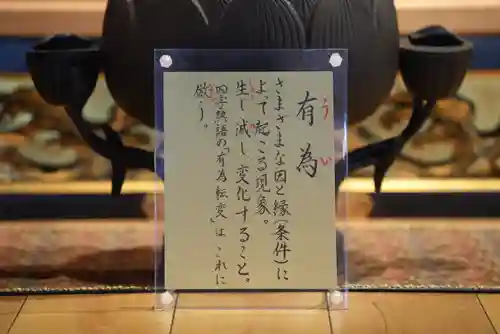 有為
うい
さまざまな因と縁(条件)に
よって起こる現象。
生じ滅し変化すること。
四字熟語の「有為転変」は、これに
倣う。